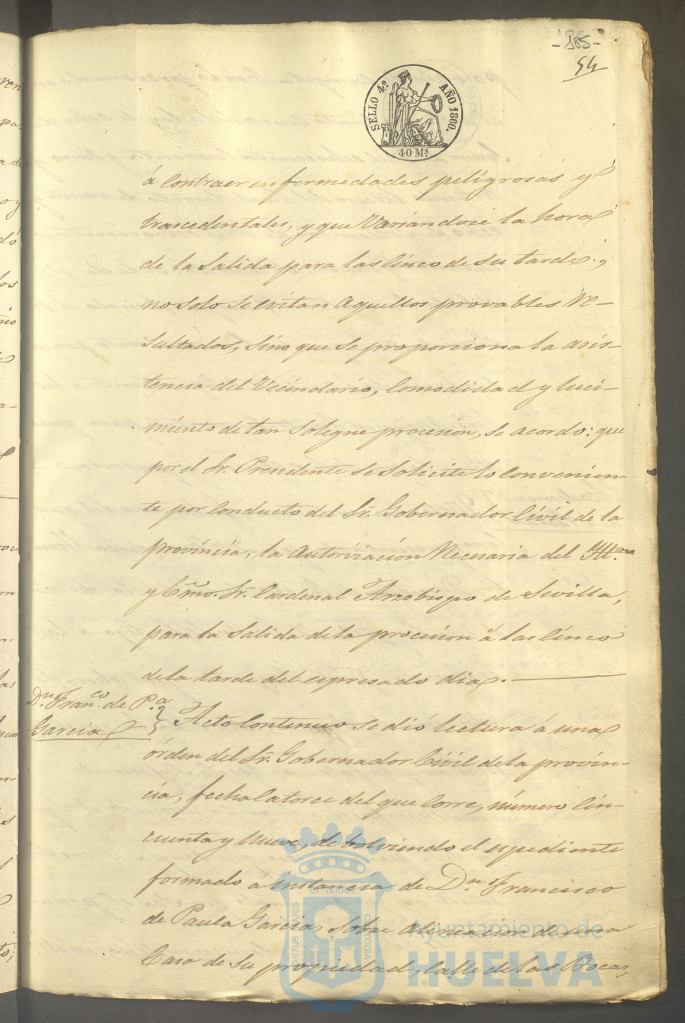 -185-
54
SELLO 4.º AÑO 1860.
40 Mˢ
á contraer enfermedades peligrosas y
trascedentales, y que variandose la hora
de la salida para las cinco de su tarde,
no solo se evitan aquellos provables re-
sultados, sino que se proporciona la asis-
tencia del Vecindario, comodidad y luci-
miento de tan solegne procesion, se acordo: que
por el Sr. Presidente se solicite lo convenien-
te por conducto del Sr. Gobernador Civil de la
provincia, la autorizacion necesaria del
y Cmo. Sr. Cardenal Arzobispo de Sevilla,
para la salida de la procesion á las cinco
de la tarde del espresado dia.
Dn. Franco. de Pa.
Garcia
Acto continuo se dió lectura á una
órden del Sr. Gobernador Civil de la provin-
cia, fecha catorce del que corre, número cin-
cuenta y nueve, devolviendo el espediente
formado á instancia de Dn. Francisco
de Paula Garcia, sobre alineacion de una
Casa de su propiedad, calle de las Bocas,
Ayuntamiento de
HUELVA